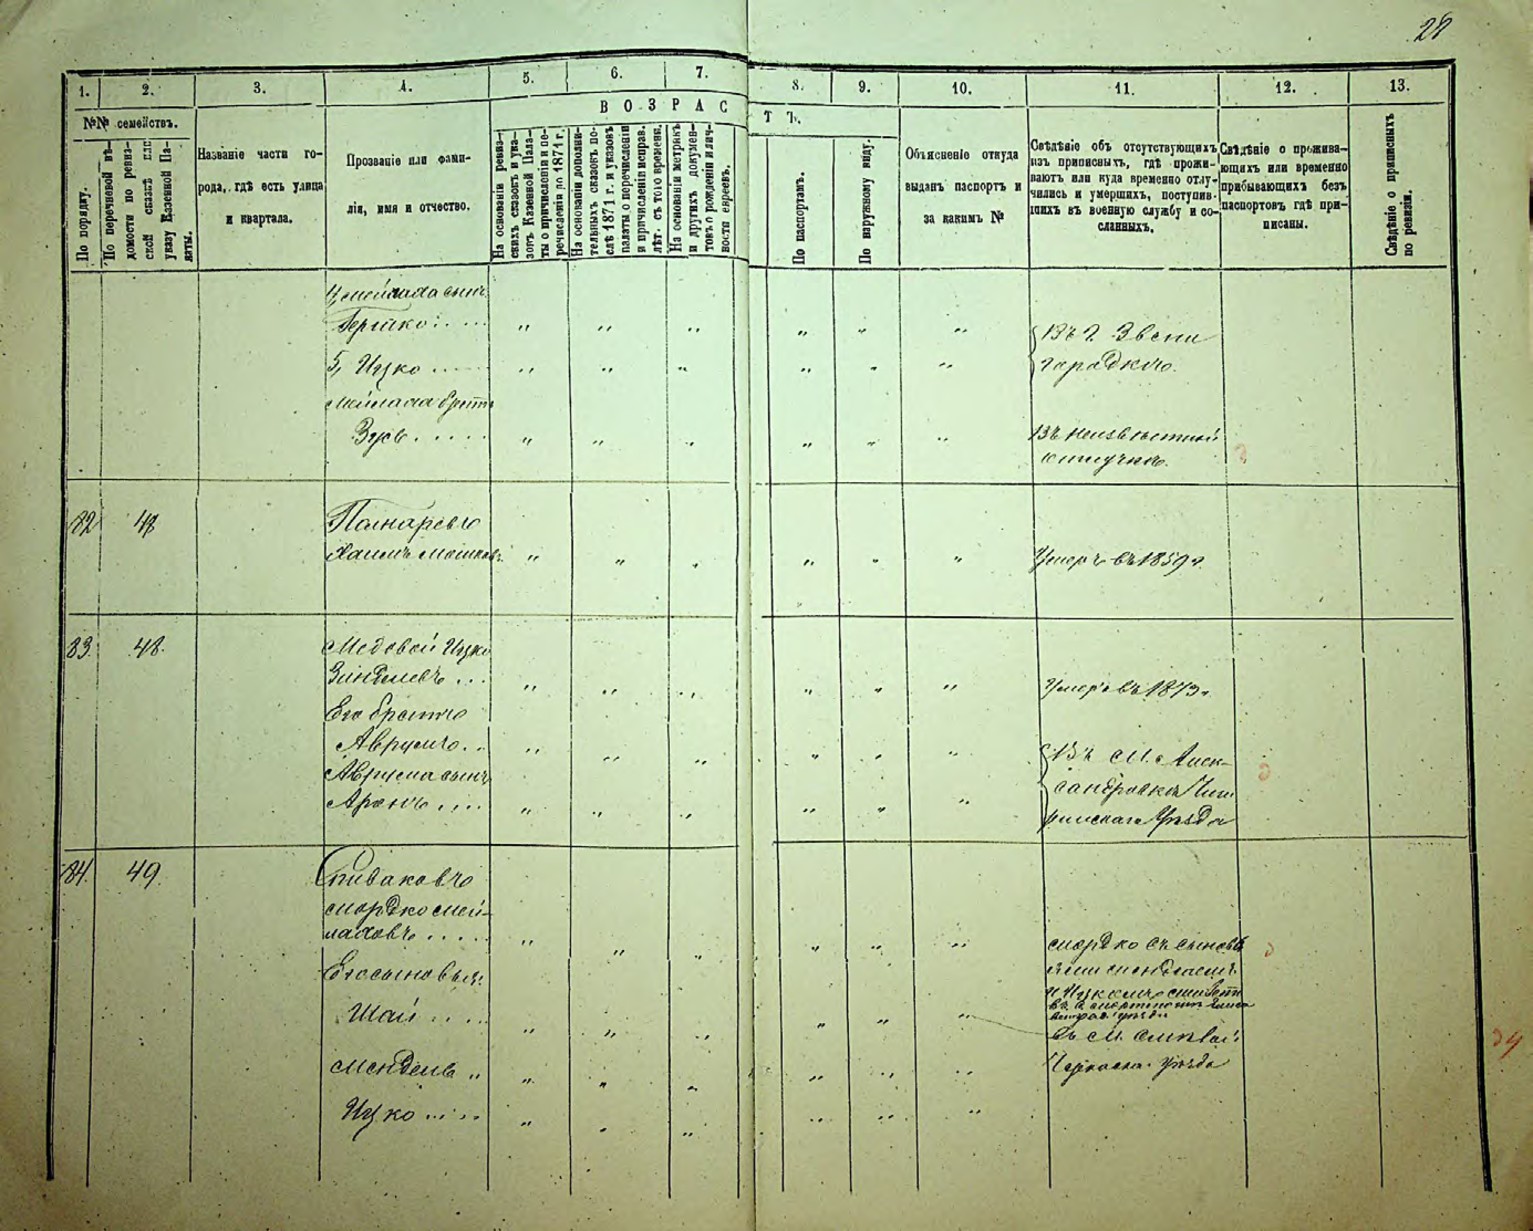 28
1. 2. 3. 4. 5. 6. 7. 8. 9. 10. 11. 12. 13.
№№ семействъ.
По порядку.
По перечневой вѣ-
домости по ревиз-
ской сказкѣ или
указу Казенной Па-
латы.
Названіе части го-
рода, гдѣ есть улица
и квартала.
Прозваніе или фами-
лія, имя и отчество.
ВОЗРАСТЪ.
На основаніи ревиз-
скихъ сказокъ и ука-
зовъ Казенной Пала-
ты о причисленіи и пе-
речисленіи до 1871 г.
На основаніи дополни-
тельныхъ сказокъ по-
слѣ 1871 г. и указовъ
палаты о перечисленіи
и причисленіи исправ.
лѣт. съ того времени.
На основаніи метрикъ
и другихъ докумен-
товъ о рожденіи и лич-
ности евреевъ.
По паспортамъ.
По наружному виду.
Объясненіе откуда
выданъ паспортъ и
за какимъ №
Свѣдѣніе объ отсутствующихъ
изъ приписныхъ, гдѣ прожи-
ваютъ или куда временно отлу-
чились и умершихъ, поступив-
шихъ въ военную службу и со-
сланныхъ.
Свѣдѣніе о прожива-
ющихъ или временно
прибывающихъ безъ
паспортовъ гдѣ при-
писаны.
Свѣдѣніе о приписныхъ
по ревизіи.
4, Мейлаха сынъ
Гершко
5, Ицко
Въ г. Звени
городкѣ.
Мейлаха братъ
Въ неизвѣстной
отлучкѣ.
82 48
Хаимъ Мошковъ
Умеръ въ 1859 г.
83. 48.
Медовой Ицко
Зинделевъ
Умеръ въ 1873 г.
Его братъ
Аврумъ
Аврума сынъ
Аронъ
Въ М. Алек-
сандровкѣ Чиги
ринскаго Уѣзда
84. 49.
Спиваковъ
Мордко Мей-
лаховъ
Его сыновья:
Шай
Мендель
Ицко
Мордко съ сыновь
ями Менделемъ
и Ицкомъ
въ М. Смѣлой
Черкаск. Уѣзда